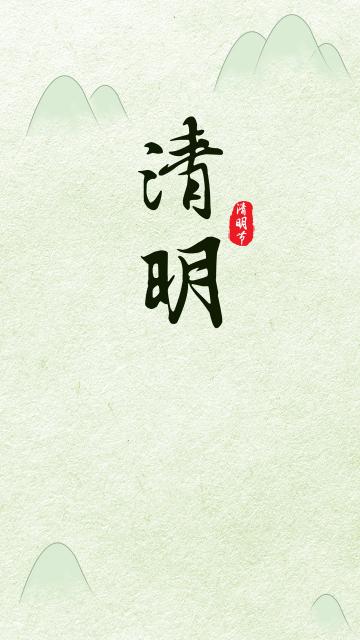 清明
清明节